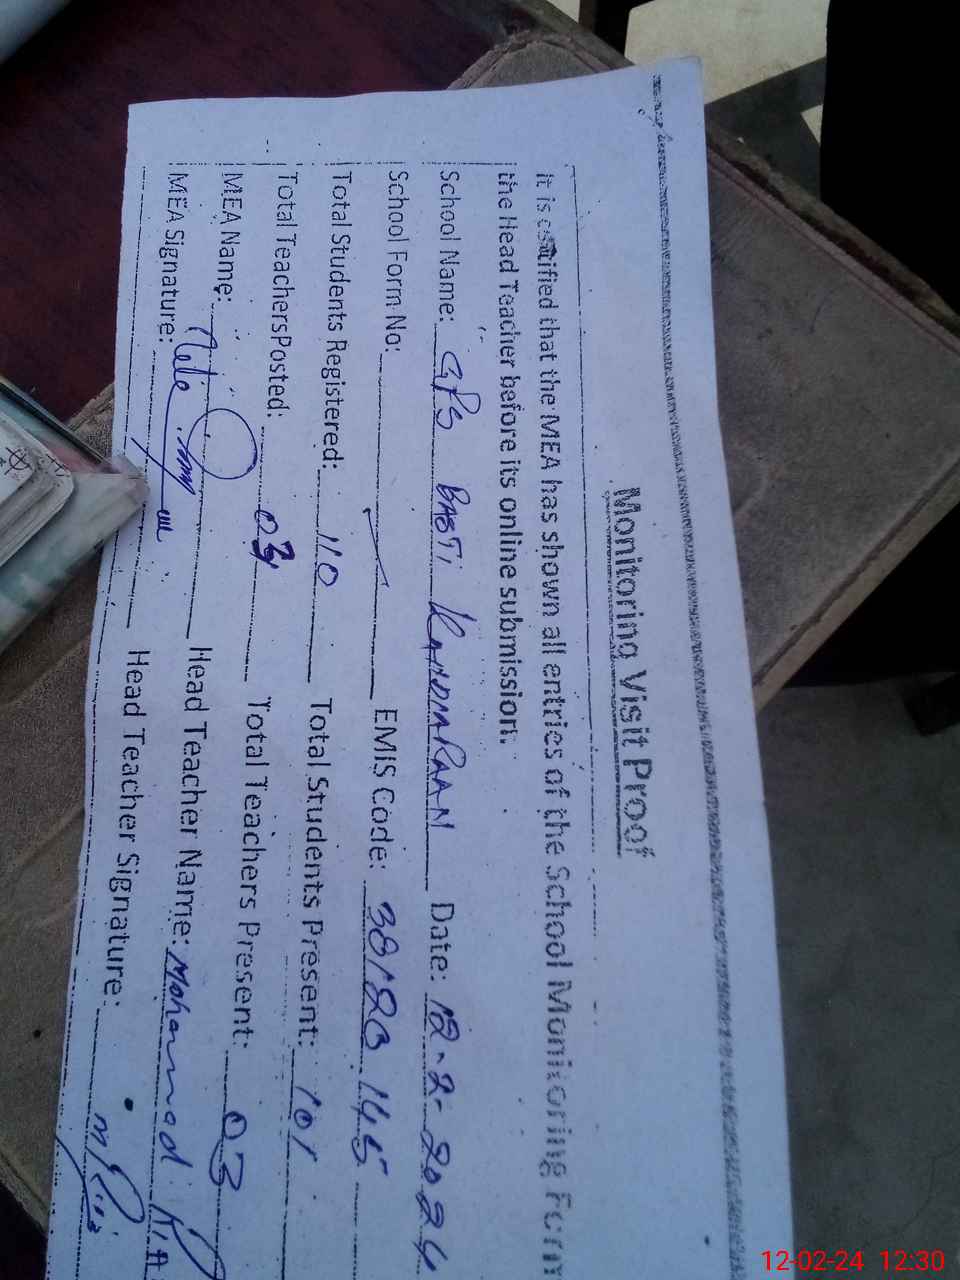 Monitoring Visit Proof
It is certified that the MEA has shown all entries of the School Monitoring Form
the Head Teacher before its online submission.
School Name: GPS BASTI Date: 12-2-2024
School Form No: EMIS Code:
Total Students Registered: 110 Total Students Present: 101
Total Teachers Posted: 03 Total Teachers Present: 03
MEA Name: Head Teacher Name: Mohammad
MEA Signature: Head Teacher Signature:
12-02-24 12:30